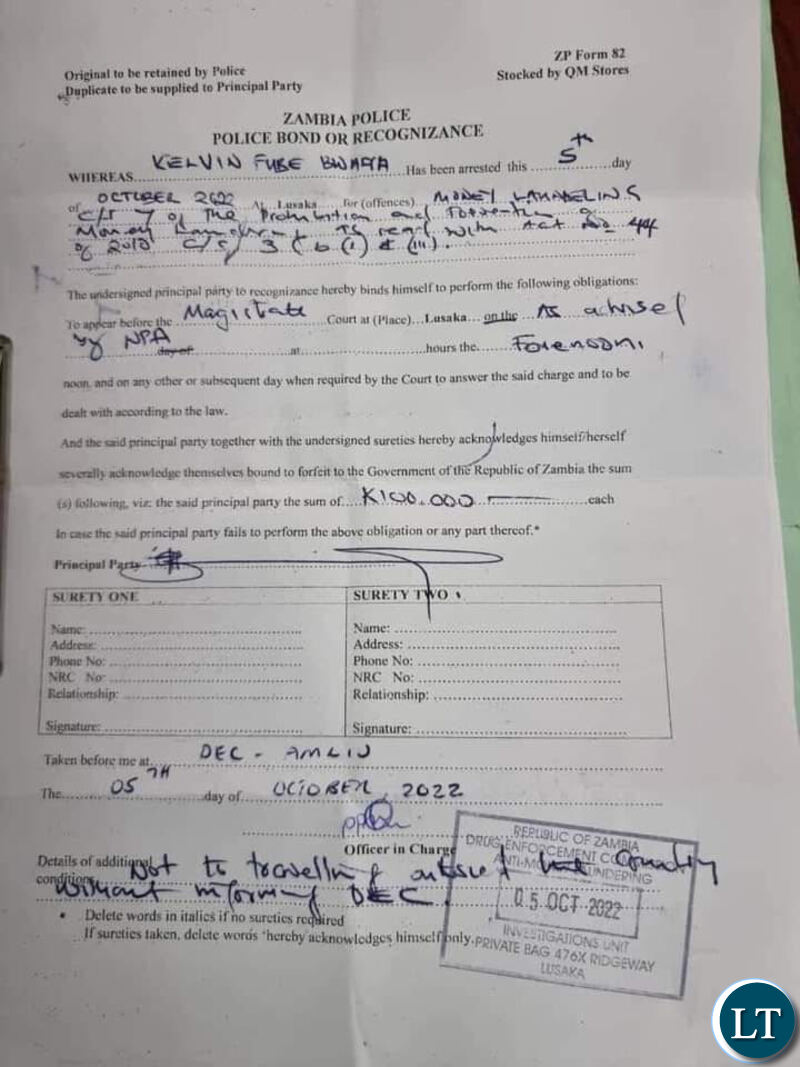 ZP Form 82
Original to be retained by Police
Stocked by QM Stores
Duplicate to be supplied to Principal Party
ZAMBIA POLICE
POLICE BOND OR RECOGNIZANCE
WHEREAS KELVIN FUBE BWALYA Has been arrested this 5th day
of OCTOBER 2022 At Lusaka for (offences) MONEY
C/r 7 of The Prohibition and
Money with Act No 44
of 2010 C/S 3 (b (i) & (iii).
The undersigned principal party to recognizance hereby binds himself to perform the following obligations:
To appear before the Magistrate Court at (Place)...Lusaka... on the ...As
by NPA day of at hours the
noon, and on any other or subsequent day when required by the Court to answer the said charge and to be
dealt with according to the law.
And the said principal party together with the undersigned sureties hereby acknowledges himself/herself
severally acknowledge themselves bound to forfeit to the Government of the Republic of Zambia the sum
(s) following, viz: the said principal party the sum of K100.000 each
In case the said principal party fails to perform the above obligation or any part thereof.*
Principal Party
SURETY ONE
Name:
Address:
Phone No:
NRC No:
Relationship:
Signature:
SURETY TWO
Name:
Address:
Phone No:
NRC No:
Relationship:
Signature:
Taken before me at DEC - AMLIU
The 05TH day of OCTOBER, 2022
Officer in Charge
Details of additional Not to
conditions without informing DEC
• Delete words in italics if no sureties required
If sureties taken, delete words 'hereby acknowledges himself only.
REPUBLIC OF ZAMBIA
DRUG ENFORCEMENT
05 OCT 2022
INVESTIGATIONS UNIT
PRIVATE BAG 476X RIDGEWAY
LUSAKA
LT